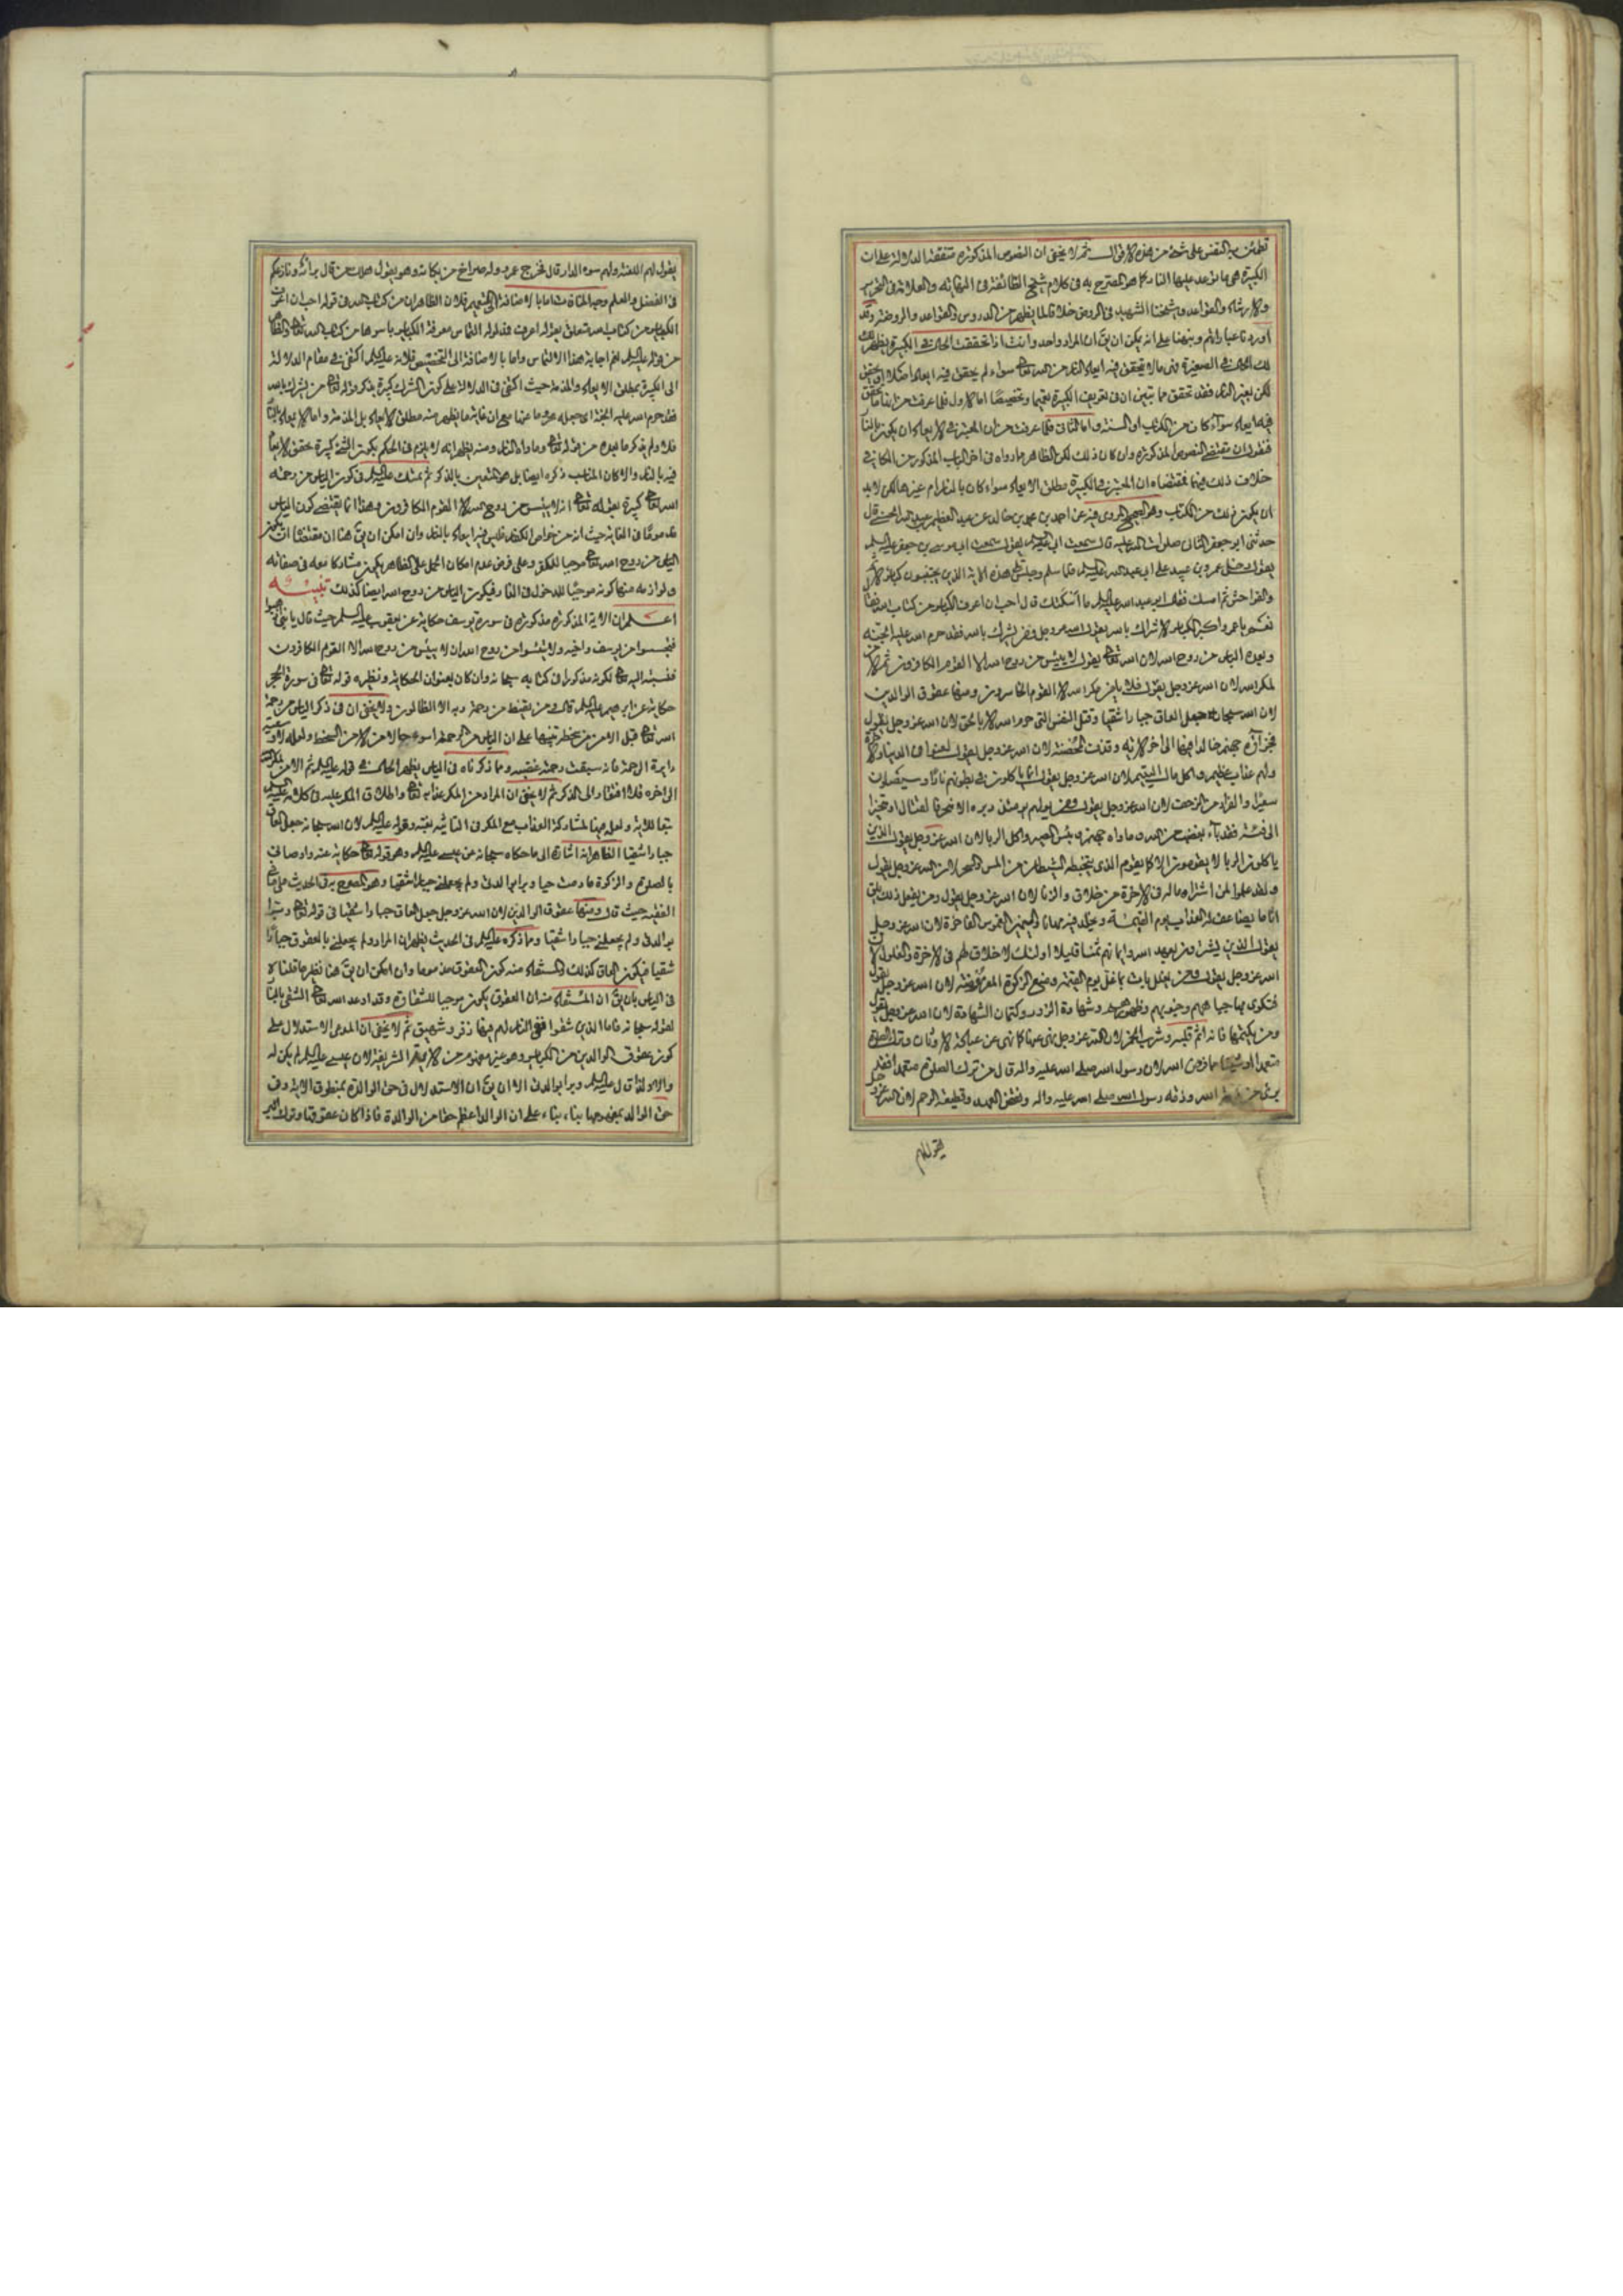 تطمئن به النفس على شيء من هذه الاقوال ثم لا يخفى ان النصوص المذكورة متفقة الدلالة على ان
الكبيرة هي ما توعد عليها النار كما هو المصرح به في كلام شيخ الطائفة في النهاية والعلامة في التحرير
والارشاد والقواعد وشيخنا الشهيد في الدروس خلافا لما يظهر من الدروس والقواعد والروضة وقد
اوردنا عباراتهم ونبهنا على انه يمكن ان يق ان المراد واحد وانت اذا تحققت الحال في الكبيرة يظهر
لك الحال في الصغيرة فهي ما لا يتحقق فيه ايعاد النار من الله تعالى سواء لم يتحقق فيه ايعاد اصلا او تحقق
لكن بغير النار فقد تحقق مما بتين ان في تعريف الكبيرة تعميما وتخصيصا اما الاول فلما عرفت من انها ما تحقق
فيه ايعاد سواء كان من الكتاب او السنة واما الثاني فلما عرفت من ان المعتبر في الايعاد ان يكون بالنار
فنقول ان مقتضى النصوص المذكورة وان كان ذلك لكن الظاهر مما رواه في اخر الباب المذكور من الكافي
خلاف ذلك فيهما فمقتضاه ان المعتبر في الكبيرة مطلق الايعاد سواء كان بالنار ام غيرها لكن لا بد
ان يكون ذلك من الكتاب وهو الصحيح المروي فيه عن احمد بن محمد بن خالد عن عبد العظيم بن عبد الله الحسني قال
حدثني ابو جعفر الثاني صلوات الله عليه قال سمعت ابي عليه السلام يقول سمعت ابي موسى بن جعفر عليه السلام
يقول دخل عمرو بن عبيد على ابي عبد الله عليه السلام فلما سلم وجلس تلا هذه الاية الذين يجتنبون كبائر الاثم
والفواحش ثم امسك فقال ابو عبد الله عليه السلام ما اسكتك قال احب ان اعرف الكبائر من كتاب الله فقال
نعم يا عمرو اكبر الكبائر الاشراك بالله يقول الله عز وجل ومن يشرك بالله فقد حرم الله عليه الجنة
وبعده الياس من روح الله لان الله تعالى يقول لا ييئس من روح الله الا القوم الكافرون ثم الامن
لمكر الله لان الله عز وجل يقول فلا يامن مكر الله الا القوم الخاسرون ومنها عقوق الوالدين
لان الله سبحانه جعل العاق جبارا شقيا وقتل النفس التي حرم الله الا بالحق لان الله عز وجل يقول
فجزاؤه جهنم خالدا فيها الى اخر الاية وقذف المحصنة لان الله عز وجل يقول لعنوا في الدنيا والاخرة
ولهم عذاب عظيم واكل مال اليتيم لان الله عز وجل يقول انما ياكلون في بطونهم نارا وسيصلون
سعيرا والفرار من الزحف لان الله عز وجل يقول ومن يولهم يومئذ دبره الا متحرفا لقتال او متحيزا
الى فئة فقد باء بغضب من الله وماواه جهنم وبئس المصير واكل الربا لان الله عز وجل يقول الذين
ياكلون الربا لا يقومون الا كما يقوم الذي يتخبطه الشيطان من المس والسحر لان الله عز وجل يقول
ولقد علموا لمن اشتراه ما له في الاخرة من خلاق والزنا لان الله عز وجل يقول ومن يفعل ذلك يلق
اثاما يضاعف له العذاب يوم القيمة ويخلد فيه مهانا واليمين الغموس الفاجرة لان الله عز وجل
يقول الذين يشترون بعهد الله وايمانهم ثمنا قليلا اولئك لا خلاق لهم في الاخرة والغلول لان
الله عز وجل يقول ومن يغلل يات بما غل يوم القيمة ومنع الزكوة المفروضة لان الله عز وجل يقول
فتكوى بها جباههم وجنوبهم وظهورهم وشهادة الزور وكتمان الشهادة لان الله عز وجل يقول
ومن يكتمها فانه اثم قلبه وشرب الخمر لان الله عز وجل نهى عنها كما نهى عن عبادة الاوثان وترك الصلوة
متعمدا او شيئا مما فرض الله لان رسول الله صلى الله عليه واله قال من ترك الصلوة متعمدا فقد
برئ من ذمة الله وذمة رسول الله صلى الله عليه واله ونقض العهد وقطيعة الرحم لان الله عز وجل
يقول لهم
يقول لهم اللعنة ولهم سوء الدار قال فخرج عمرو وله صراخ من بكائه وهو يقول هلك من قال برائه ونازعكم
في الفضل والعلم وجه المنافات اما بالاضافة الى التعميم فلان الظاهر ان من كتاب الله في قوله احب ان اعرف
الكبائر من كتاب الله متعلق بقوله اعرف فمدلوله التماس معرفة الكبائر باسرها من كتاب الله تعالى والظاهر
من قوله عليه السلام نعم اجابة هذا الالتماس واما بالاضافة الى التخصيص فلانه عليه السلام اكتفى في مقام الدلالة
الى الكبيرة بمطلق الايعاد والمذمة حيث اكتفى في الدلالة على كون الشرك كبيرة بذكر قوله تعالى من يشرك بالله
فقد حرم الله عليه الجنة اي جعله محروما عنها مع ان غاية ما يظهر منه مطلق الايعاد بل المذمة واما الايعاد بالنار
فلا ولم يذكر ما بعده من قوله تعالى وماواه النار ومنه يظهر انه لا يلزم في الحكم بكون الشيء كبيرة تحقق الايعاد
فيه بالنار والا كان المناسب ذكره ايضا بل هو المتعين بالذكر ثم تمسك عليه السلام في كون الياس من رحمة
الله تعالى كبيرة بقوله تعالى انه لا ييئس من روح الله الا القوم الكافرون وهذا انما يقتضي كون الياس
مذموما في الغاية حيث انه من خواص الكفار فليس فيه ايعاد بالنار وان امكن ان يق هنا ان مقتضاه ان يكون
الياس من روح الله تعالى موجبا للكفر وعلى فرض عدم امكان الحمل على الظاهر يكون مشاركا معه في صفاته
ولوازمه منها كونه موجبا للدخول في النار فيكون الياس من روح الله ايضا كذلك تنبيه
اعلم ان الاية المذكورة مذكورة في سورة يوسف حكاية عن يعقوب عليه السلام حيث قال يا بني اذهبوا
فتحسسوا من يوسف واخيه ولا تيئسوا من روح الله انه لا ييئس من روح الله الا القوم الكافرون
فنسبته اليه تعالى لكونه مذكورا في كتابه سبحانه وان كان بعنوان الحكاية ونظيره قوله تعالى في سورة الحجر
حكاية عن ابرهيم عليه السلام قال ومن يقنط من رحمة ربه الا الضالون ولا يخفى ان في ذكر الياس من رحمة
الله تعالى قبل الامن من سخطه تنبيها على ان الياس من الرحمة اسوء حالا من الامن من السخط ولعله لان سعة
دايرة الرحمة فانه سبقت رحمته غضبه ومما ذكرناه في الياس يظهر الحال في قوله عليه السلام ثم الامن لمكر الله
الى اخره فلا افتقار الى الذكر ثم لا يخفى ان المراد من المكر عذابه تعالى واطلاق المكر عليه في كلامه عليه السلام
تبعا للاية ولعله فيها لمشاركة العذاب مع المكر في اتيانه بغتة وقوله عليه السلام لان الله سبحانه جعل العاق
جبارا شقيا الظاهر انه اشارة الى ما حكاه سبحانه عن عيسى عليه السلام وهو قوله تعالى حكاية عنه واوصاني
بالصلوة والزكوة ما دمت حيا وبرا بوالدتي ولم يجعلني جبارا شقيا وهو المصرح به في الحديث
الفقيه حيث قال ومنها عقوق الوالدين لان الله عز وجل جعل العاق جبارا شقيا في قوله تعالى وبرا
بوالدتي ولم يجعلني جبارا شقيا ومما ذكره عليه السلام في الحديث يظهر ان المراد ولم يجعلني بالعقوق جبارا
شقيا فيكون العاق كذلك والمستفاد منه كون العقوق مذموما وان امكن ان يق هنا نظير ما قلناه
في الياس بان يق ان المستفاد منه ان العقوق يكون موجبا للشقاوة وقد اوعد الله تعالى الشقي بالنار
لقوله سبحانه فاما الذين شقوا ففي النار لهم فيها زفير وشهيق ثم لا يخفى ان المدعى الاستدلال على
كون عقوق الوالدين من الكبائر وهو غير مفهوم من الاية الشريفة لان عيسى عليه السلام لم يكن له
والد ولذا قال عليه السلام وبرا بوالدتي الا ان يق ان الاستدلال في حق الوالدة بمنطوق الاية وفي
حق الوالد بمفهومها بناء على ان الوالد اعظم حقا من الوالدة فاذا كان عقوقها وترك البر